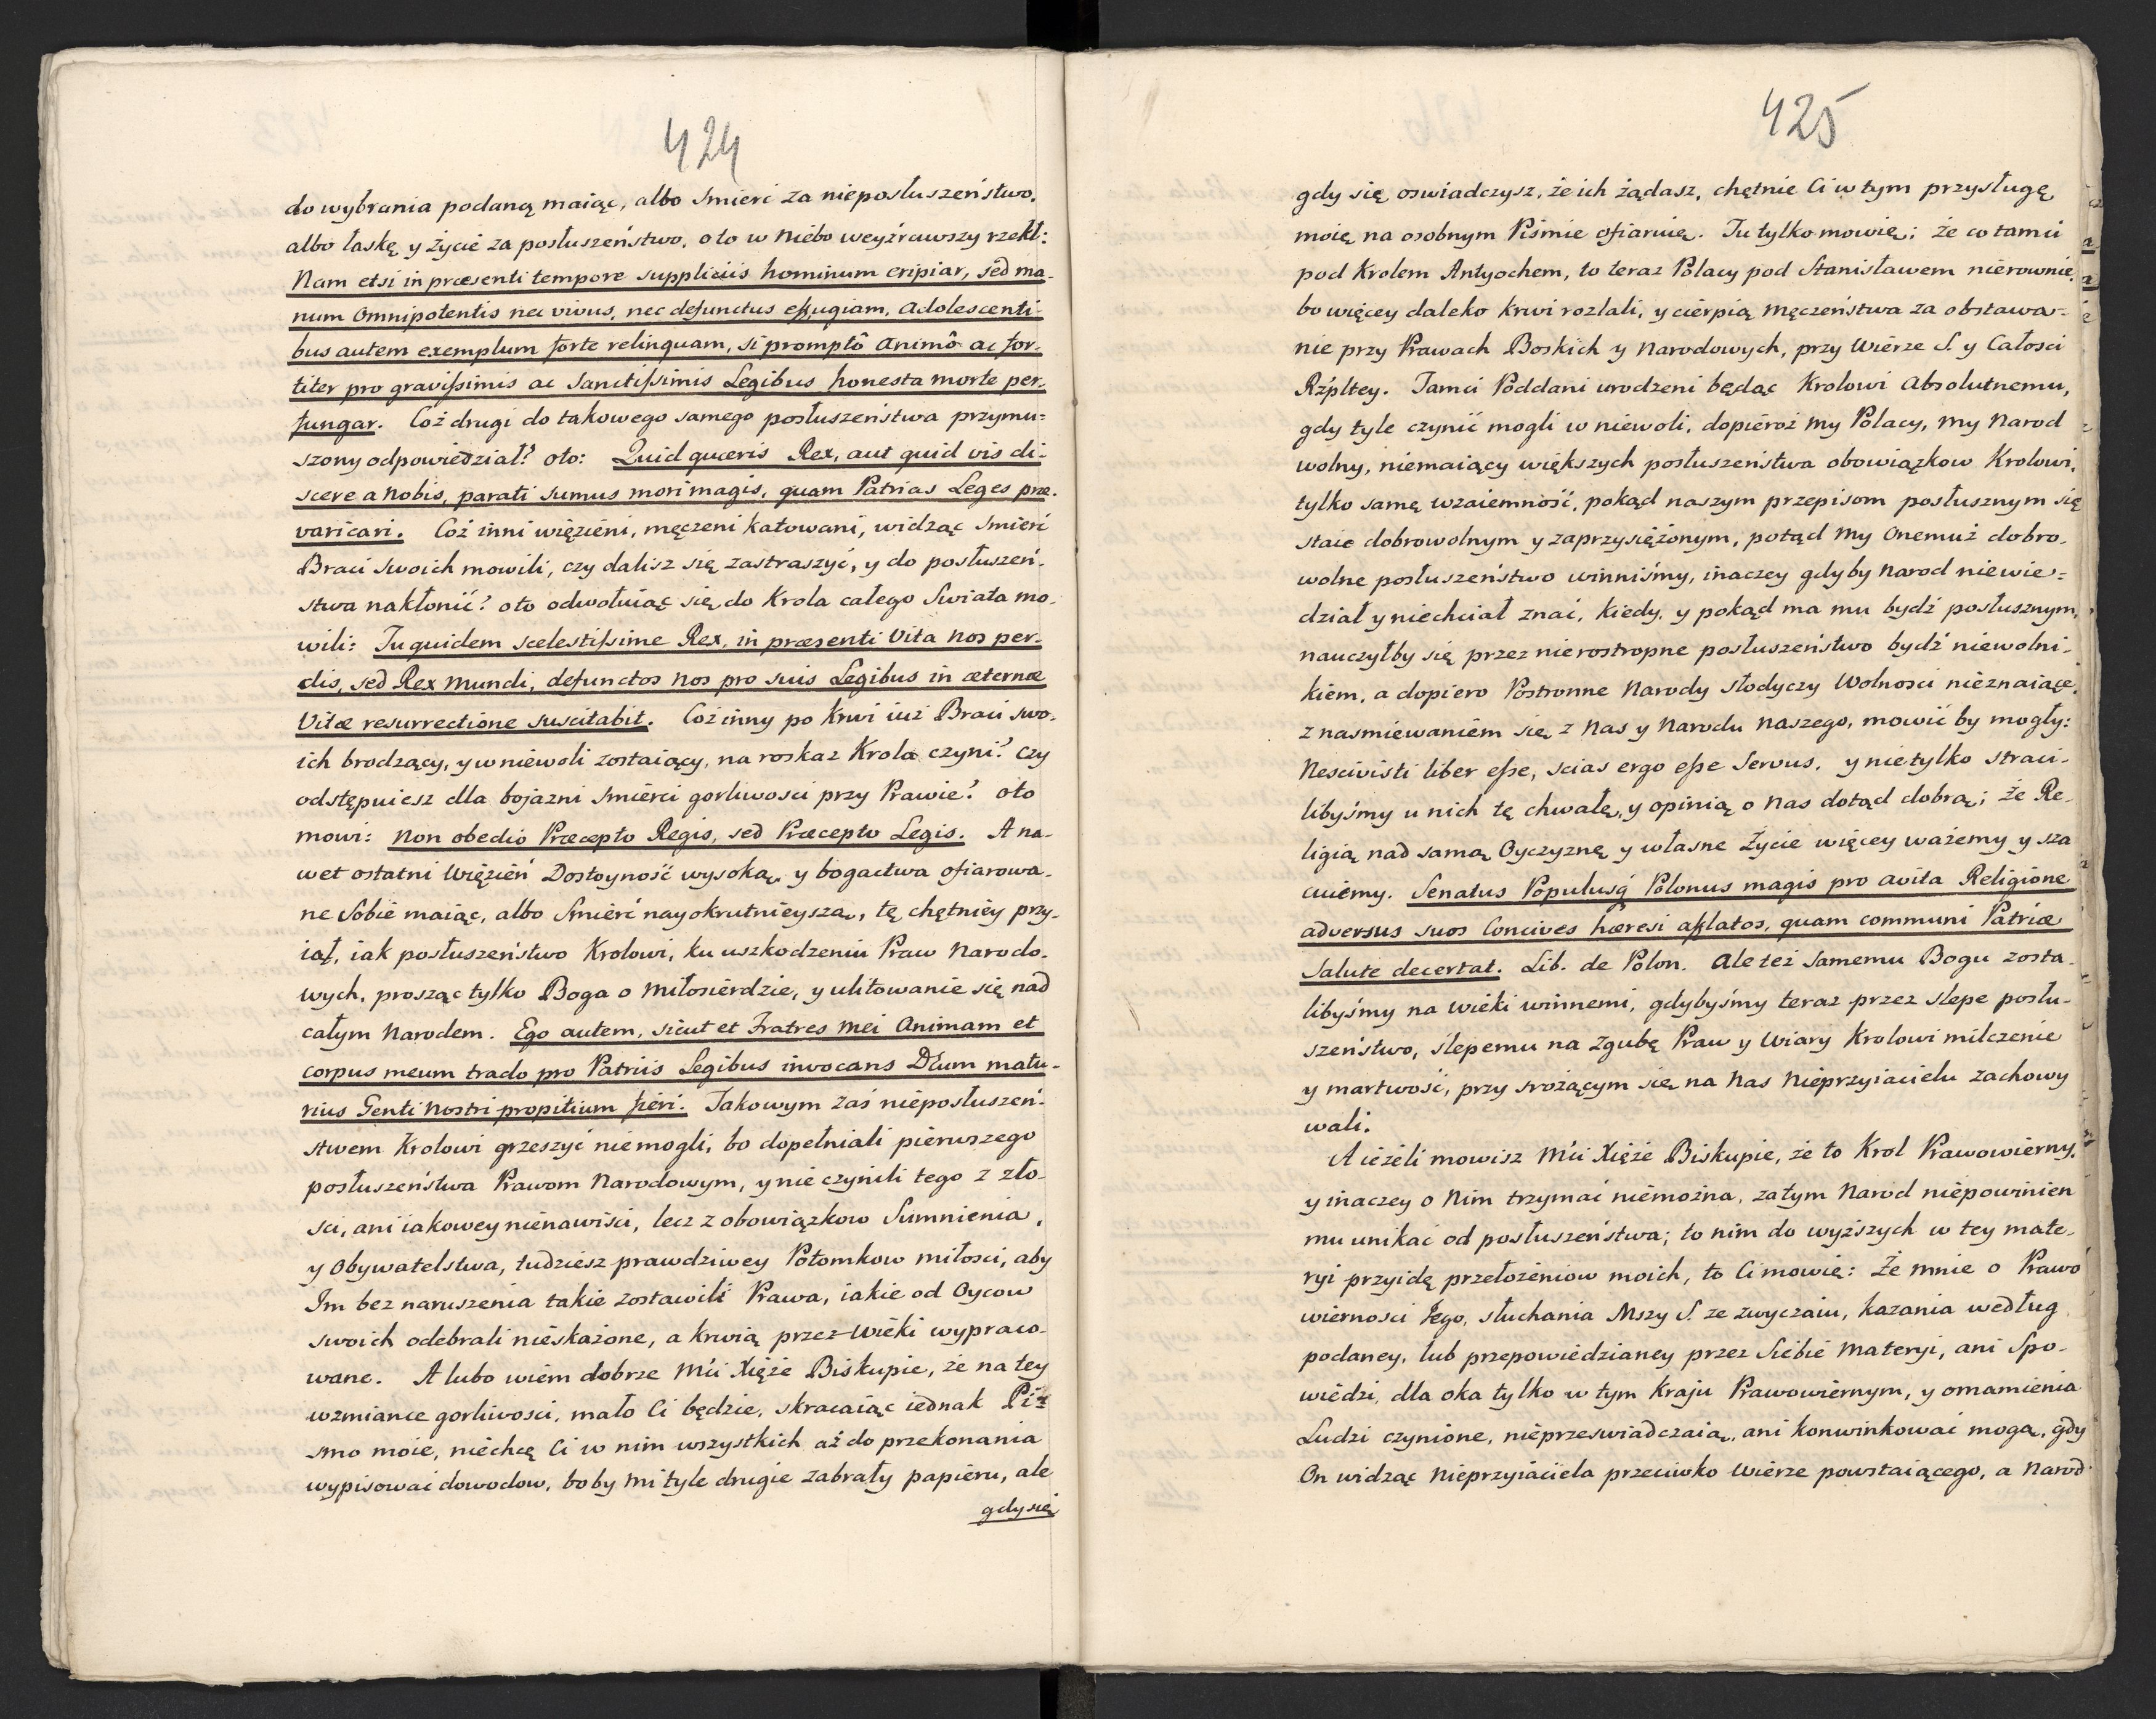 424
do wybrania podaną maiąc, albo smierć za nieposłuszeństwo,
albo łaskę y życie za posłuszeństwo, oto w Niebo weyźrawszy rzekł:
Nam etsi in præsenti tempore suppliciis hominum eripiar, sed ma-
num Omnipotentis nec vivus, nec defunctus effugiam, Adolescenti-
bus autem exemplum forte relinquam, si promptô Animô ac for-
titer pro gravissimis ac Sanctissimis Legibus honesta morte per-
fungar. Coż drugi do takowego samego posłuszeństwa przymu=
szony odpowiedział? oto: Quid quæris Rex, aut quid vis di-
scere a nobis, parati sumus mori magis, quam Patrias Leges præ-
varicari. Coż inni więzieni, męczeni katowani, widząc smierć
Braci swoich mowili, czy dalisz się zastraszyć, y do posłuszeń-
stwa nakłonić? oto odwołuiąc się do Krola całego Swiata mo-
wili: Tu quidem scelestissime Rex, in præsenti Vita nos per-
dis, sed Rex Mundi, defunctos nos pro suis Legibus in æternæ
Vitæ resurrectione suscitabit. Coż inny po Krwi iuż Braci swo-
ich brodzący, y w niewoli zostaiący, na roskaz Krola czyni? czy
odstępuiesz dla bojazni smierci gorliwosci przy Prawie? oto
mowi: Non obedio Præcepto Regis, sed Præcepto Legis. A na-
wet ostatni Więzień Dostoyność wysoką, y bogactwa ofiarowa-
ne Sobie maiąc, albo Smierć nayokrutnieyszą, tę chętniey przy-
iął, iak posłuszeństwo Krolowi, ku uszkodzeniu Praw Narodo-
wych, prosząc tylko Boga o Miłosierdzie, y ulitowanie się nad
całym Narodem. Ego autem, sicut et Fratres mei Animam et
corpus meum trado pro Patriis Legibus invocans DEum matu-
rius Genti Nostri propitium fieri. Takowym zaś nieposłuszeń-
stwem Krolowi grzeszyć niemogli, bo dopełniali pierwszego
posłuszeństwa Prawom Narodowym, y nie czynili tego z zło-
sci, ani iakowey nienawisci, lecz z obowiązkow Sumnienia,
y Obywatelstwa, tudziesz prawdziwey Potomkow miłosci, aby
Im bez naruszenia takie zostawili Prawa, iakie od Oycow
swoich odebrali nieskażone, a krwią przez wieki wypraco-
wane. A lubo wiem dobrze Mći Xięże Biskupie, że na tey
wzmiance gorliwosci, mało Ci będzie, skracaiąc iednak Pi=
smo moie, niechcę Ci w nim wszystkich aż do przekonania
wypisować dowodow, bo by mi tyle drugie zabrały papieru, ale
gdy się
425
gdy się oswiadczysz, że ich żądasz, chętnie Ci w tym przysługę
moię na osobnym Piśmie ofiaruię. Tu tylko mowię: że co tamci
pod Krolem Antyochem, to teraz Polacy pod Stanisławem nierownie,
bo więcey daleko krwi rozlali, y cierpią męczeństwa za obstawa=
nie przy Prawach Boskich y Narodowych, przy Wierze S. y Całosci
Rzpltey. Tamci Poddani urodzeni będąc Krolowi Absolutnemu,
gdy tyle czynić mogli w niewoli, dopieroż My Polacy, My Narod
wolny, niemaiący większych posłuszeństwa obowiązkow Krolowi,
tylko samę wzaiemność, pokąd naszym przepisom posłusznym się
staie dobrowolnym y zaprzysiężonym, potąd My Onemuż dobro-
wolne posłuszeństwo winniśmy, inaczey gdyby Narod niewie=
dział y niechciał znać, kiedy, y pokąd ma mu bydź posłusznym,
nauczyłby się przez nierostropne posłuszeństwo bydź niewolni-
kiem, a dopiero Postronne Narody słodyczy Wolnosci nieznaiące,
z nasmiewaniem się z Nas y Narodu Naszego, mowić by mogły:
Nescivisti liber esse, scias ergo esse Servus. y nietylko straci-
libyśmy u nich tę chwałę, y opinią o Nas dotąd dobrą; że Re-
ligią nad samą Oyczyznę y własne Życie więcey ważemy y sza
cuiemy. Senatus Populusq́ Polonus magis pro avita Religione
adversus suos Concives hæresi afflatos, quam communi Patriæ
Salute decertat. Lib. de Polon. Ale też Samemu Bogu zosta-
libyśmy na wieki winnemi, gdybyśmy teraz przez slepe posłu-
szeństwo, ślepemu na Zgubę Praw y Wiary Krolowi milczenie
y martwość, przy srożącym się na Nas Nieprzyiacielu zachowy
wali.
A ieżeli mowisz Mći Xięże Biskupie, że to Krol Prawowierny,
y inaczey o Nim trzymać niemożna, zatym Narod niepowinien
mu unikać od posłuszeństwa; to nim do wyższych w tey mate-
ryi przyidę przełożeniow moich, to Ci mowię: Że mnie o Prawo
wierności Jego, słuchania Mszy S. ze zwyczaiu, kazania według
podaney, lub przepowiedzianey przez Siebie Materyi, ani Spo-
wiedzi, dla oka tylko w tym Kraju Prawowiernym, y omamienia
Ludzi czynione, nieprzeswiadczaią, ani konwinkować mogą, gdy
On widząc Nieprzyiaciela przeciwko Wierze powstaiącego, a Narod